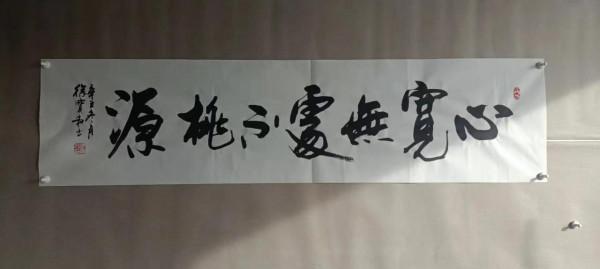 心寬無處不桃源
辛丑冬月